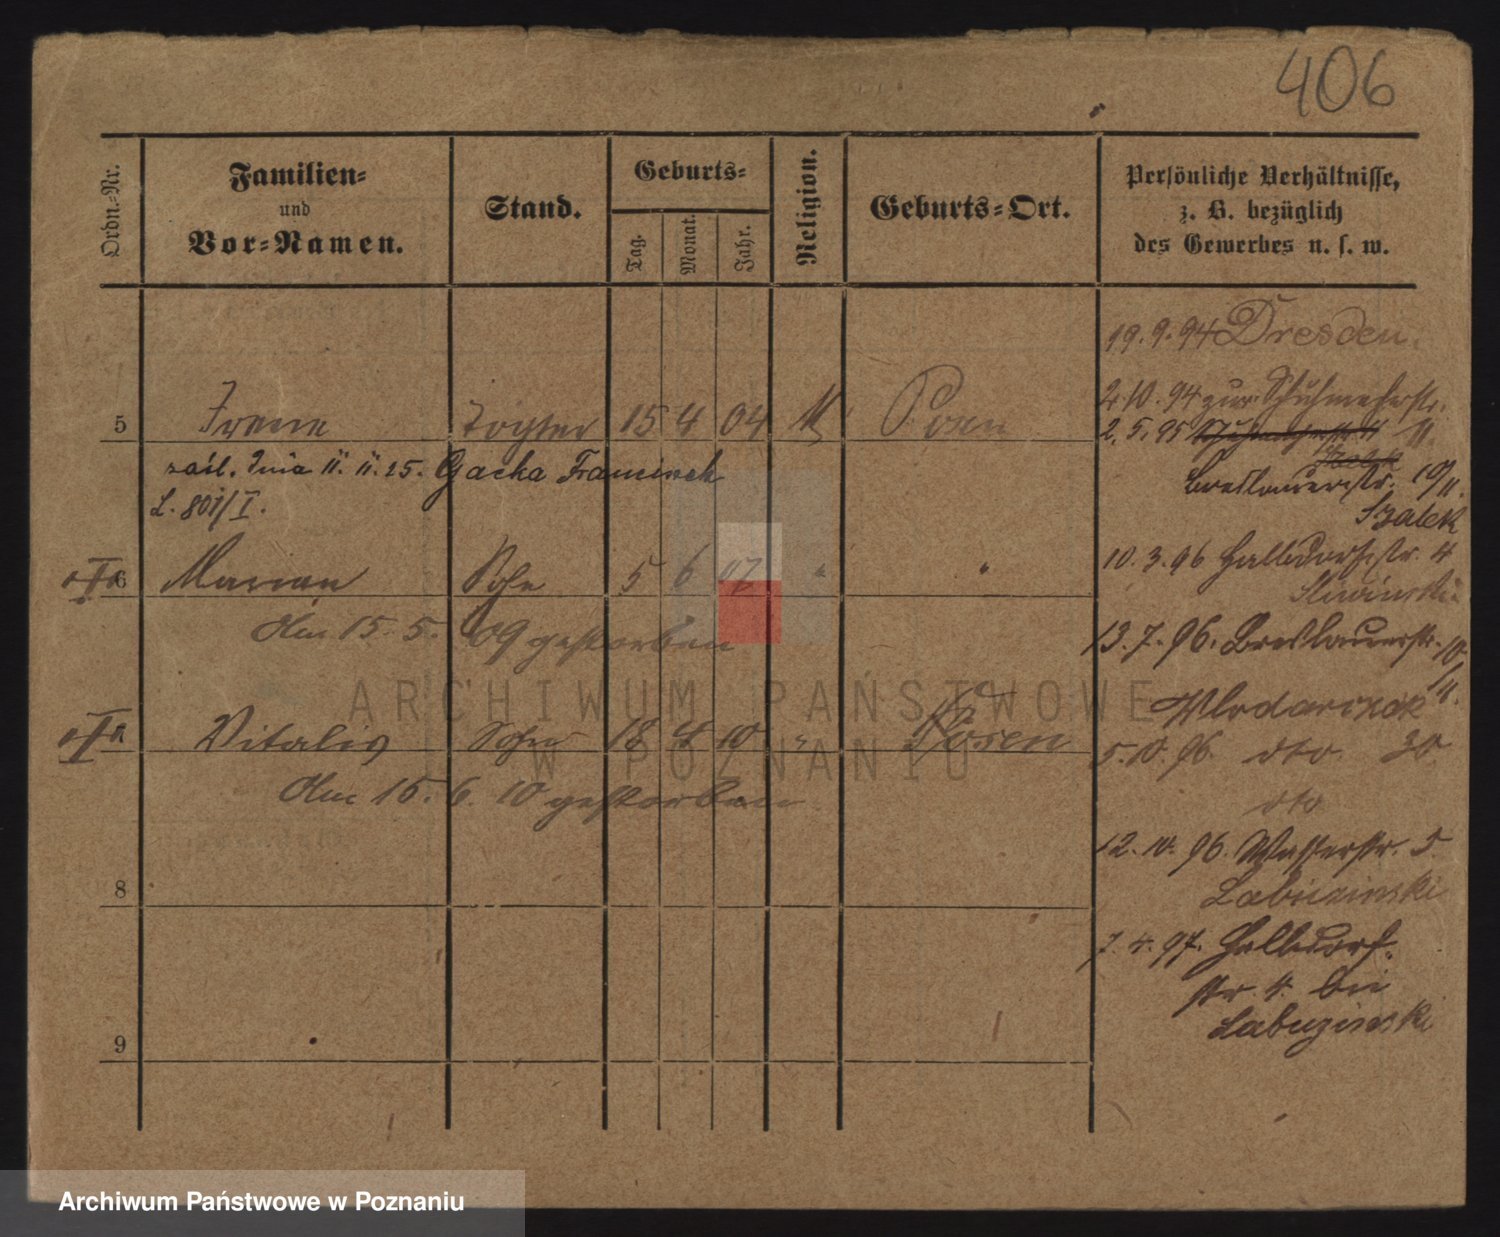 406
Ordn.-Nr.
Familien-
und
Vor-Namen.
Stand.
Geburts-
Tag.
Monat.
Jahr.
Religion.
Geburts-Ort.
Persönliche Verhältnisse,
z. B. bezüglich
des Gewerbes u. s. w.
19. 9. 94 Dresden.
2. 10. 94 zur. Schuhmacherstr.
5 Irene Tochter 15 4 04 K Posen
2. 5. 95 11.
zaśl. dnia 11. 11. 25. Gacka Franciszek
Breslauerstr. 10/11.
L. 801/I.
Szalek
10. 3. 96 Halbdorfstr. 4
6 Marian Sohn 5 6 07 " "
Sliwinski
Am 15. 5. 09 gestorben
13. 7. 96. Breslauerstr. 10/11.
Wlodarczak
Vitalis Sohn 18 4 10 " Posen
5. 10. 96. dto. 30
Am 15. 6. 10 gestorben
dto
12. 10. 96. Wasserstr. 5
8
Labuzinski
7. 4. 97. Halbdorf-
str. 4. bei
Labuzinski
9
ARCHIWUM PAŃSTWOWE
W POZNANIU
Archiwum Państwowe w Poznaniu